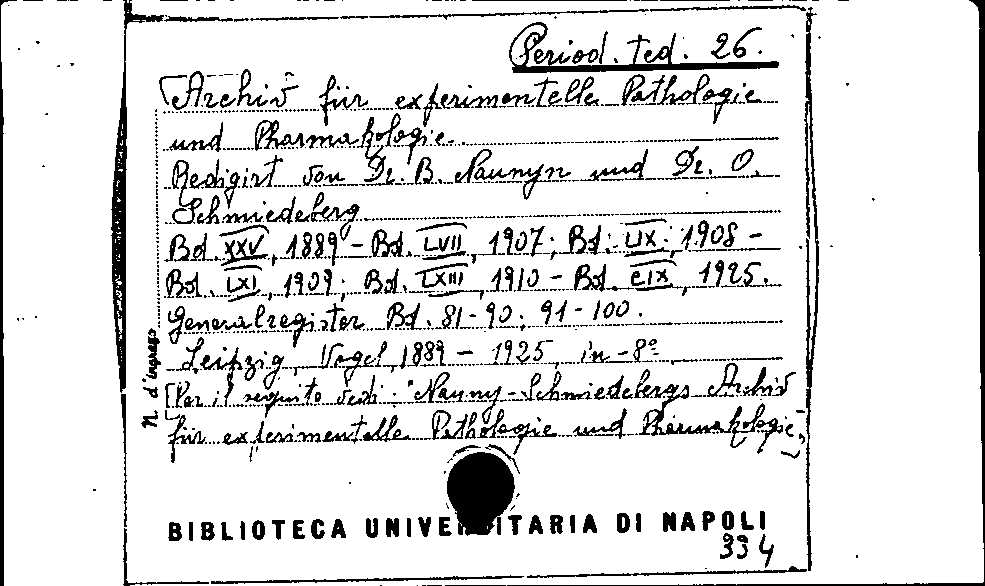 Period. ted. 26.
Archiv für experimentelle Pathologie
und Pharmakologie.
Redigirt von Dr. B. Naunyn und Dr. O.
Schmiedeberg.
Bd. XXV, 1889 - Bd. LVII, 1907; Bd. LIX, 1908 -
Bd. LXI, 1909; Bd. LXIII, 1910 - Bd. CIX, 1925.
Generalregister Bd. 81-90; 91-100.
Leipzig, Vogel, 1889 - 1925, in-8º
[Per il seguito vedi: "Nauny-Schmiedebergs Archiv
für experimentelle Pathologie und Pharmakologie"
N. d'ingresso
BIBLIOTECA UNIVERSITARIA DI NAPOLI
334